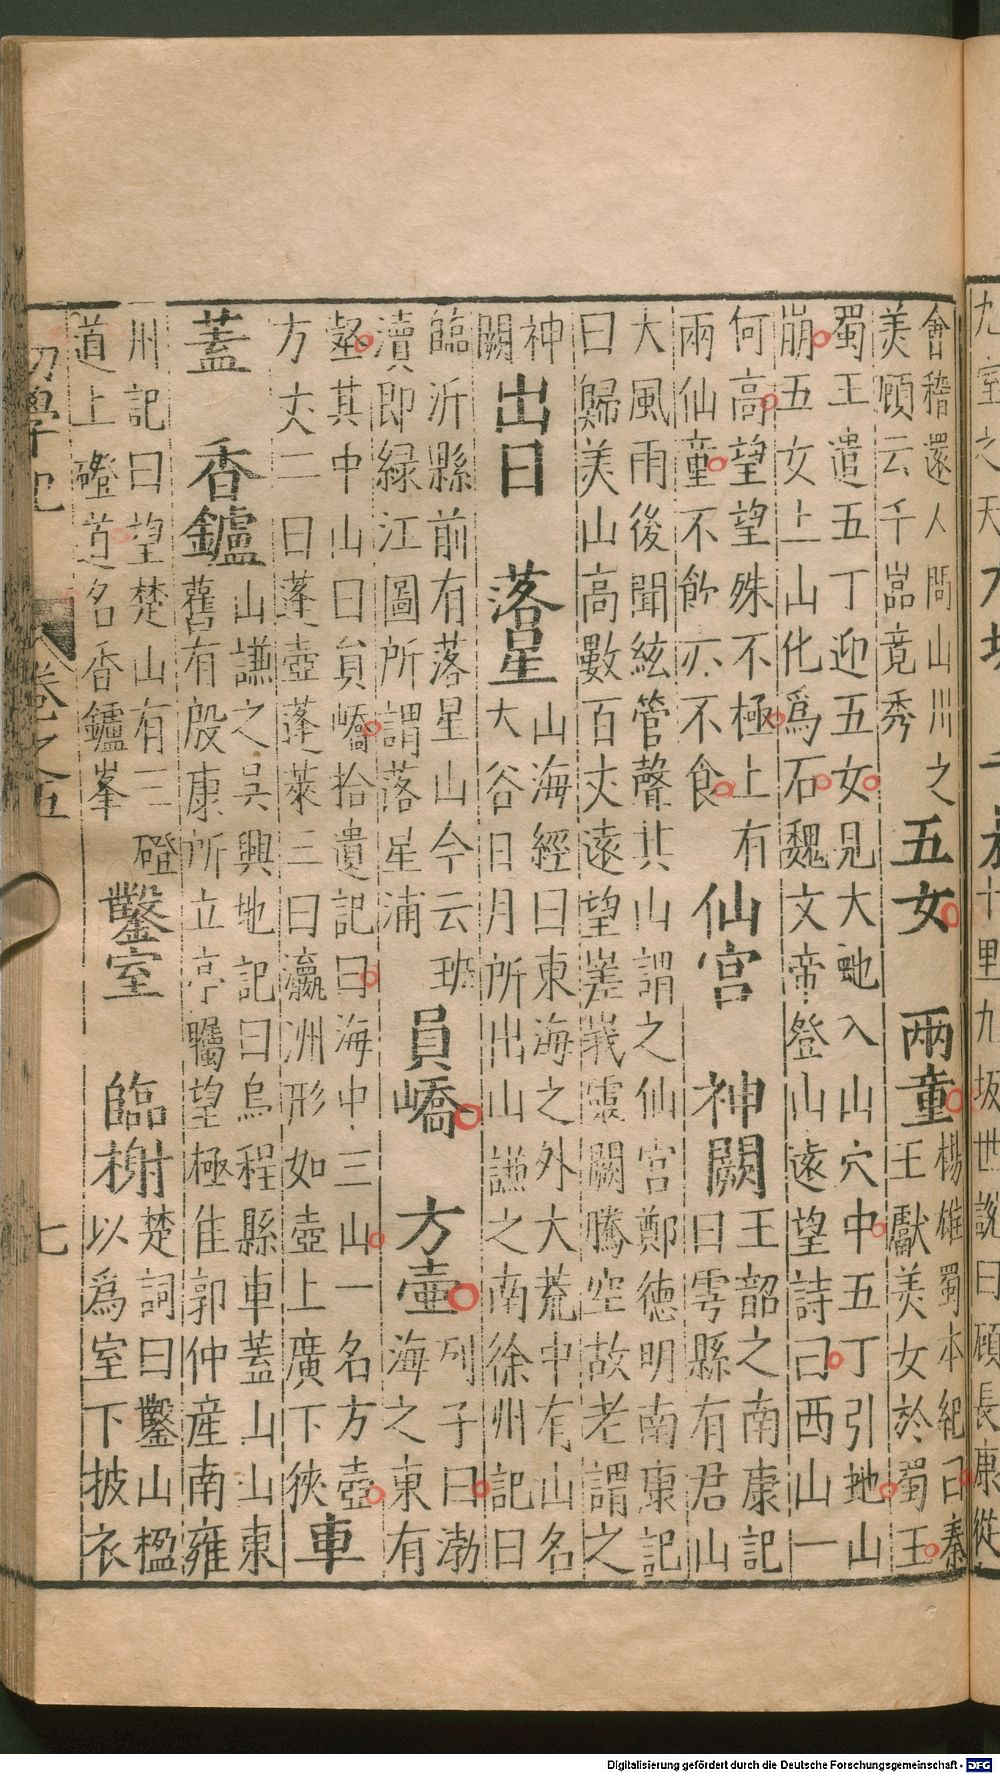 九室之天
十里九坂世說曰顧長康從
會稽還人問山川之
美顧云千嵓竟秀
五女 兩童
楊雄蜀本紀曰秦
王獻美女於蜀王
蜀王遣五丁迎五女見大虵入山穴中五丁引虵山
崩五女上山化爲石魏文帝登山遠望詩曰西山一
何高望望殊不極上有
兩仙童不飲亦不食
仙宮 神闕
王韶之南康記
曰雩縣有君山
大風雨後聞絃管聲其山謂之仙宮鄭德明南康記
曰歸美山高數百丈遠望嵳峩靈闕騰空故老謂之
神
闕
出日 落星
山海經曰東海之外大荒中有山名
大谷日月所出山謙之南徐州記曰
臨沂縣前有落星山今云班
瀆即緑江圖所謂落星浦
員嶠 方壷
列子曰渤
海之東有
壑其中山曰員嶠拾遺記曰海中三山一名方壺
方丈二曰蓬壺蓬萊三曰瀛洲形如壺上廣下狹
車
蓋 香鑪
山謙之吳興地記曰烏程縣車蓋山山東
舊有殷康所立亭矚望極佳郭仲産南雍
州記曰望楚山有三磴
道上磴道名香鑪峯
鑿室 臨榭
楚詞曰鑿山楹
以爲室下披衣
初學記 卷之五 七
Digitalisierung gefördert durch die Deutsche Forschungsgemeinschaft - DFG